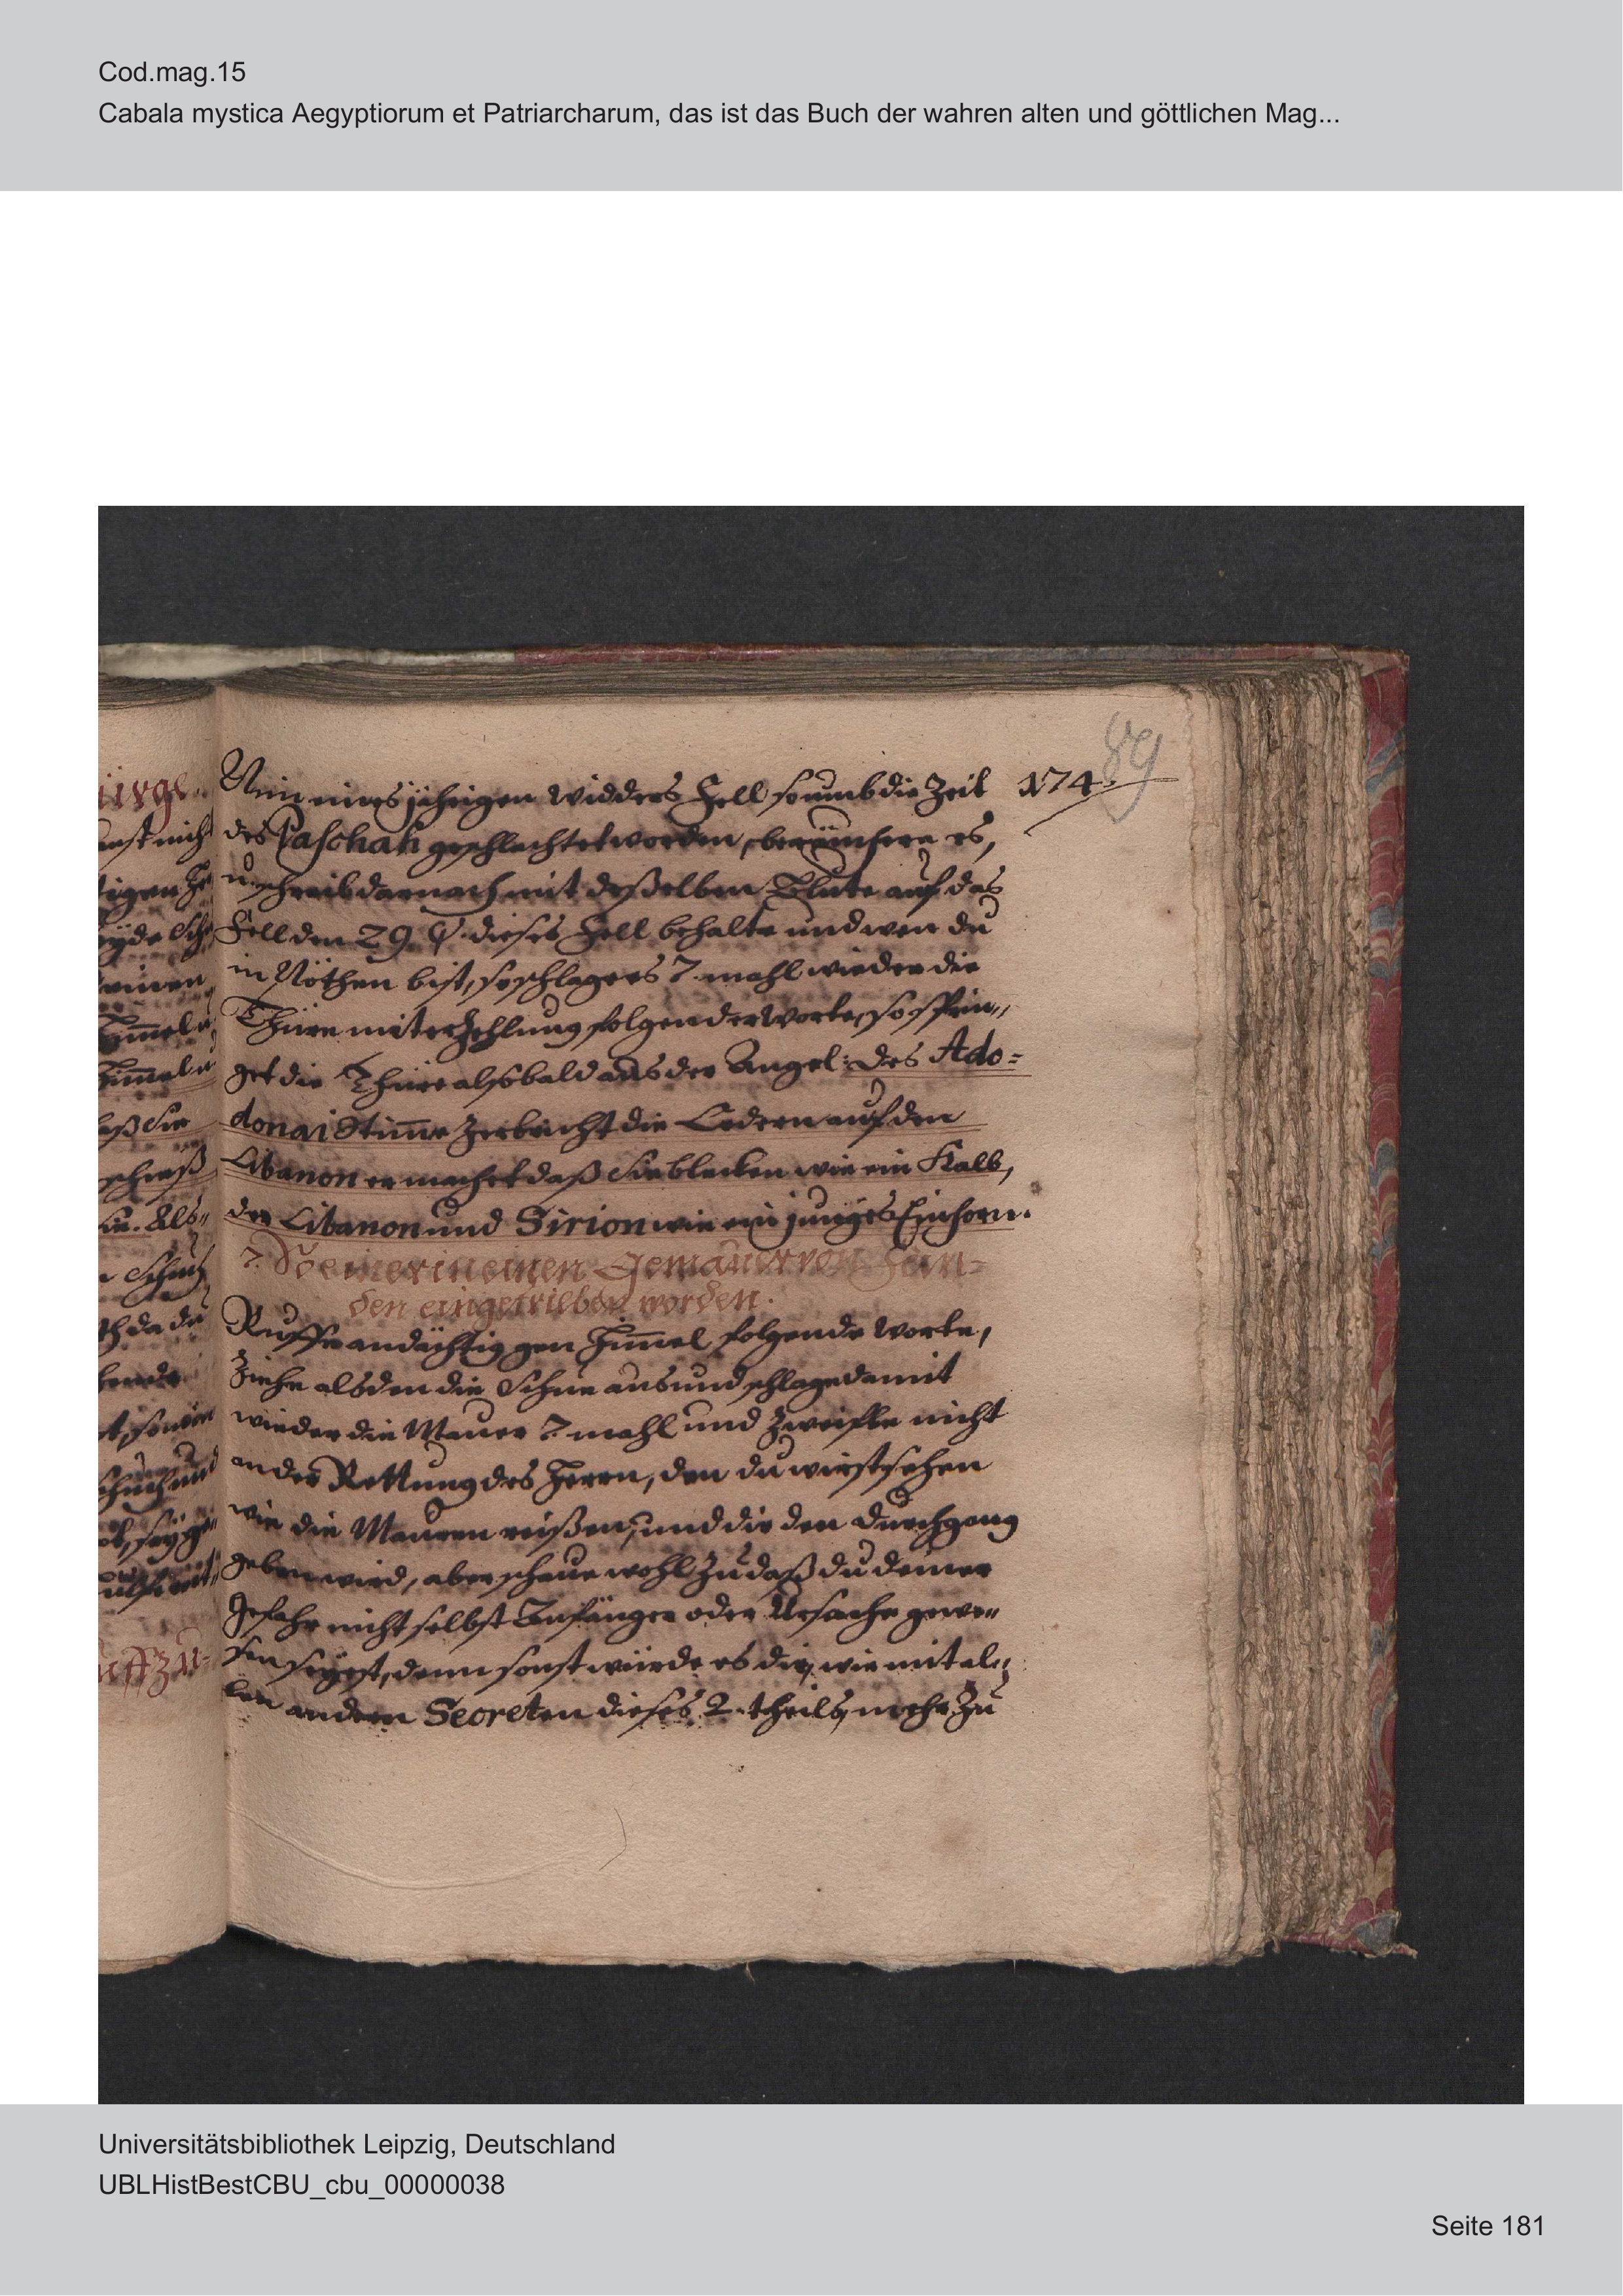 Cod.mag.15
Cabala mystica Aegyptiorum et Patriarcharum, das ist das Buch der wahren alten und göttlichen Mag...
89
174.
Nim eines jährigen Widders Fell so umb die Zeit
des Paschah geschlachtet worden, beräuchere es,
u. schreib darnach mit deßelben Blute auf das
Fell den 29. ψ. dieses Fell behalte und wen du
in Nöthen bist, so schlage es 7. mahl wieder die
Thüre mit erzehlung folgender Worte, so sprin„
get die Thüre alsobald aus der Angel: des Ado=
donai Stim̄e zerbricht die Cedern auf den
Libanon er machet daß sie blecken wie ein Kalb,
der Libanon und Sirion wie ein junges Einhorn.
7. So einer in einen Gemäuer von Fein=
den eingetrieben worden.
Ruffe andächtig gen Him̄el folgende Worte,
Ziehe alsden die Schue aus und schlage damit
wieder die Mauer 7 mahl und Zweifle nicht
an der Rettung des Herrn, den du wirst sehen
wie die Mauren reißen, und dir den durchgang
geben wird, aber schaue wohl zu daß du deiner
Gefahr nicht selbst Anfänger oder Ursache gewe„
sen seyest, denn sonst würde es dir, wie mit al„
len andern Secreten dieses 2. theils, mehr zu
Universitätsbibliothek Leipzig, Deutschland
UBLHistBestCBU_cbu_00000038
Seite 181